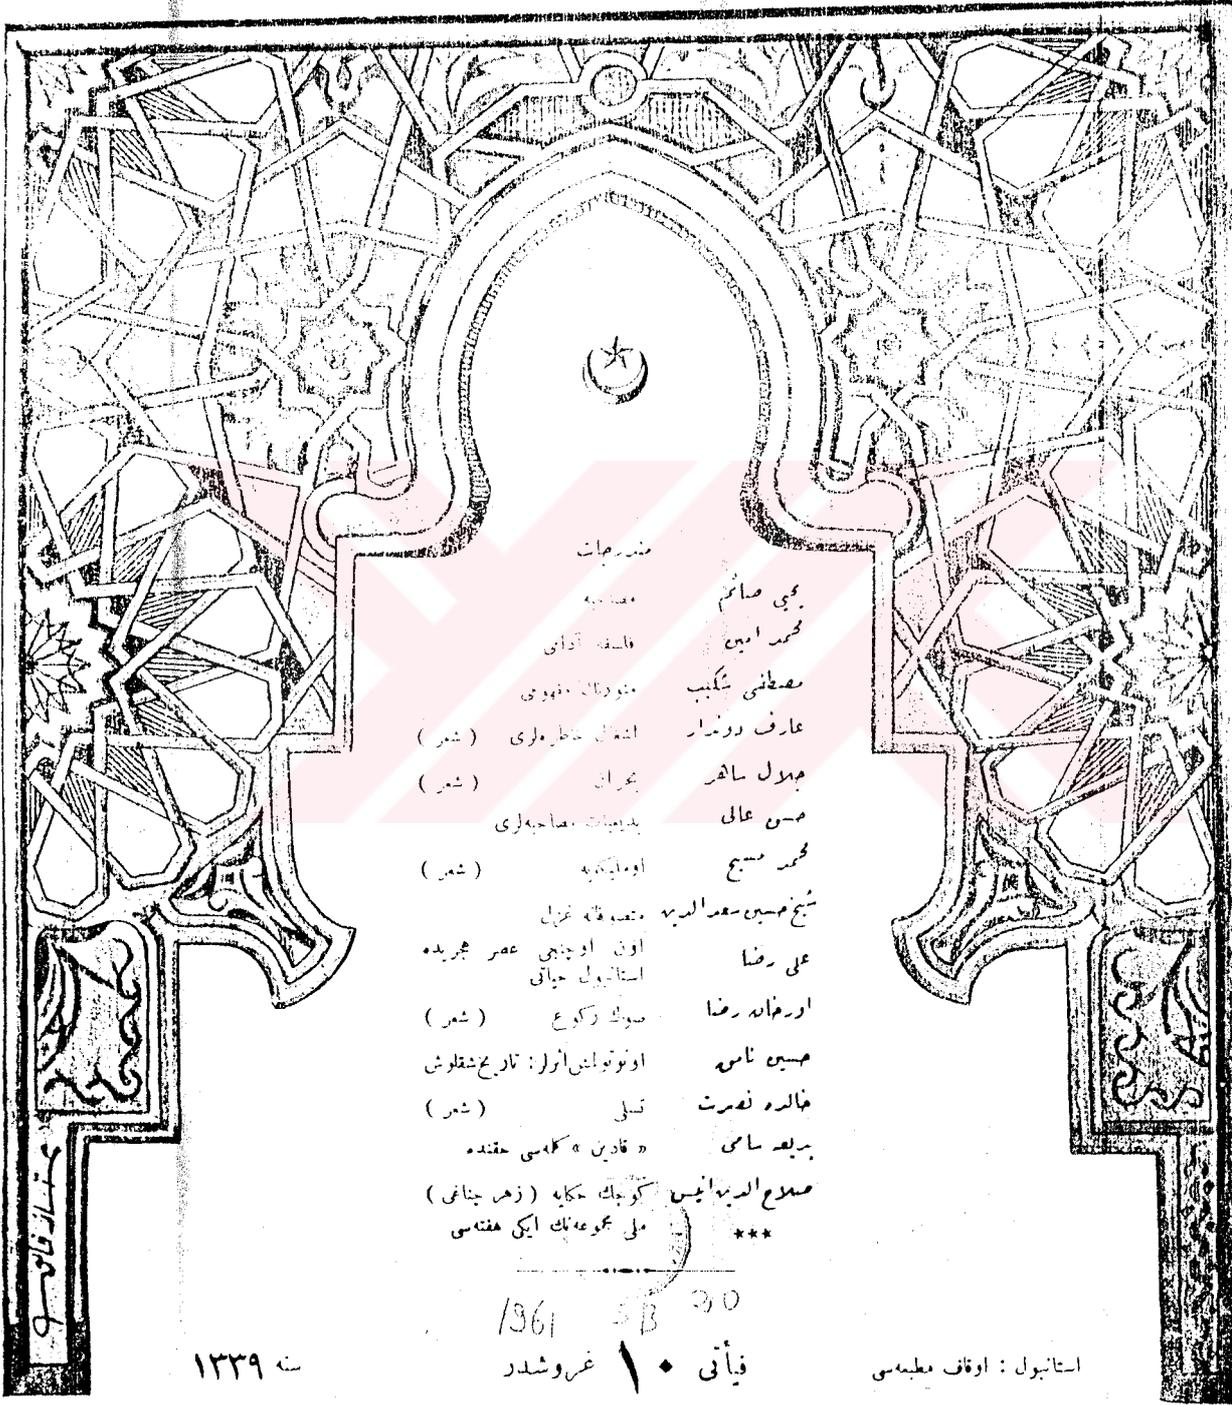 مندرجات
يحيى صائم مصاحبه
محمد امين فلسفه آدابى
مصطفى شكيب منورلك مفهومى
عارف دوندار اشغال خاطره‌لرى ( شعر )
جلال ساهر بحران ( شعر )
حسن عالى بديعيات مصاحبه‌لرى
محمد مسيح ( شعر )
شيخ حسين سعد الدين متصوفانه غزل
على رضا اون اوچنجى عصر هجريده
استانبول حياتى
اورخان رضا صوك ركوع ( شعر )
حسين نامق اونوتولمش اثرلر : تاريخ شقلوش
خالده نصرت تسلى ( شعر )
بديعه سامى « قادين » كلمه‌سى حقنده
صلاح الدين انيس كوچك حكايه ( زهر چناغى )
*** ملى مجموعه‌نك ايكى هفته‌سى
1961
استانبول : اوقاف مطبعه‌سى
فيأتى ١٠ غروشدر
سنه ١٣٣٩